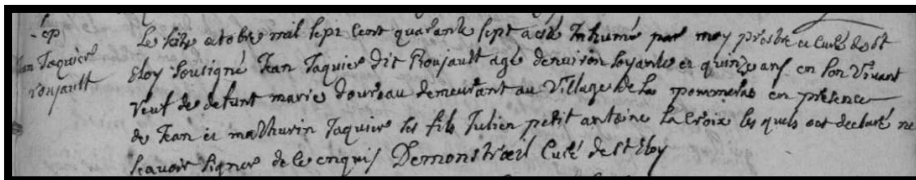 Le seize octobre mil sept cent quarante sept a été Inhumé par moy prestre et Curé de St
-ep
Jean Jaquier
Eloy Sousigné Jean Jaquier dit Rioujault agé denviron soyante et quinze ans en son vivant
rioujault
Veuf de defunt marie doureau demeurant au Village de Las pommeras en presence
de Jean et mathurin Jaquier ses fils Julien petit antoine La Croix les quels ont declaré ne
scavoir signer de ce enquis Demonstroeil Curé de St Eloy